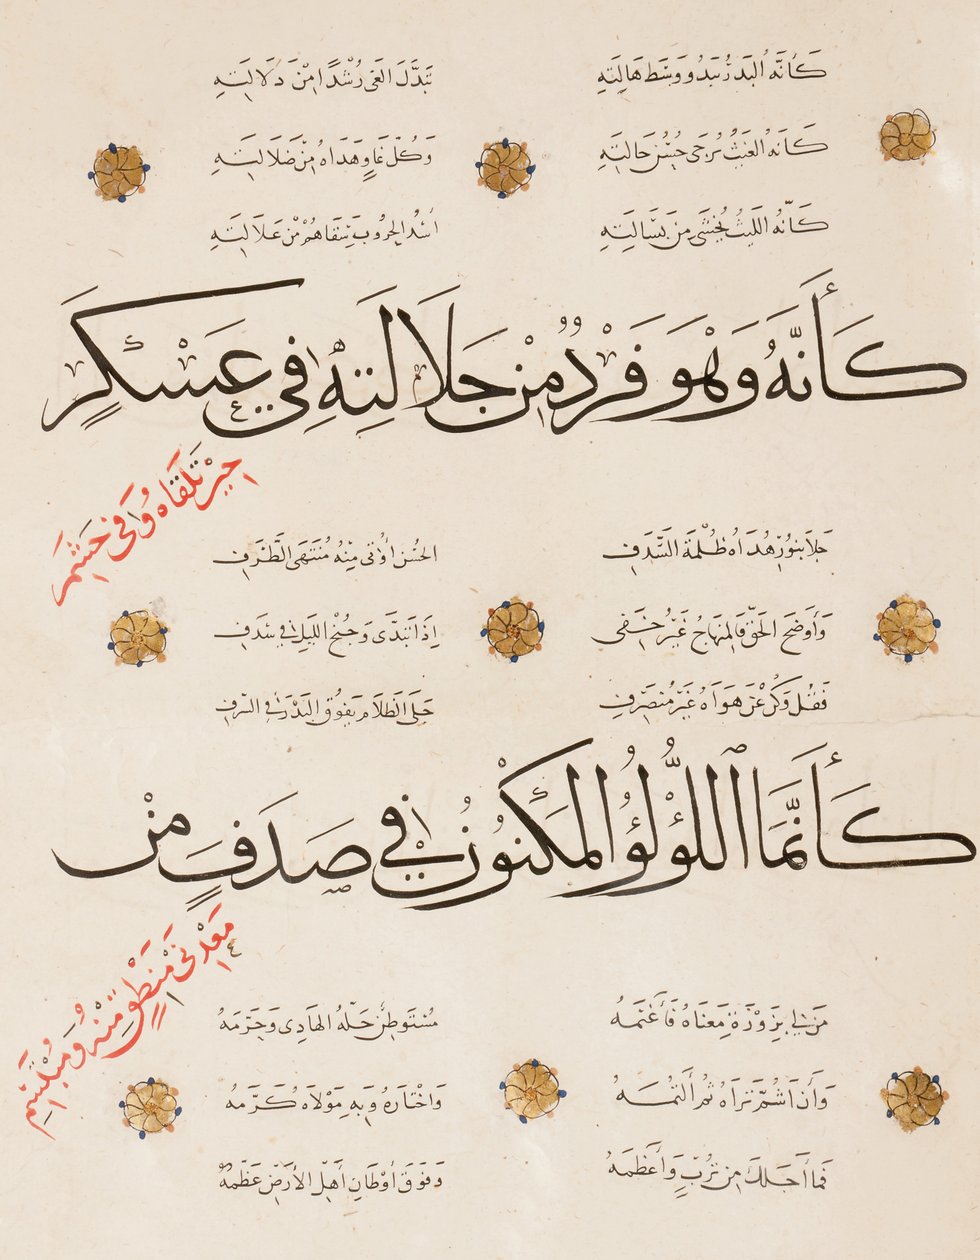 كَأَنَّهُ البَدْرُ يَبْدُو وَسْطَ هَالَتِهِ تَبَدَّلَ الغَيُّ رُشْدًا مِنْ دَلَالَتِهِ
كَأَنَّهُ الغَيْثُ يُرْجَى حُسْنُ حَالَتِهِ وَكُلُّ غَاوٍ هَدَاهُ مِنْ ضَلَالَتِهِ
كَأَنَّهُ اللَّيْثُ يُخْشَى مِنْ بَسَالَتِهِ أُسْدُ الحُرُوبِ سَقَاهُمْ مِنْ عَلَالَتِهِ
كَأَنَّهُ وَهْوَ فَرْدٌ مِنْ جَلَالَتِهِ فِي عَسْكَرٍ
حِيْنَ تَلْقَاهُ وَفِي حَشَمِ
جَلَا بِنُورِ هُدَاهُ ظُلْمَةَ السَّدَفِ الحُسْنُ أُوتِيَ مِنْهُ مُنْتَهَى الطَّرَفِ
وَأَوْضَحَ الحَقَّ فَالمِنْهَاجُ غَيْرُ خَفِي إِذَا تَبَدَّى وَجُنْحُ اللَّيْلِ فِي سَدَفِ
فَقُلْ وَكُنْ عَنْ هَوَاهُ غَيْرَ مُنْصَرِفِ جَلَى الظَّلَامَ يَفُوقُ البَدْرَ فِي الشَّرَفِ
كَأَنَّمَا اللُّؤْلُؤُ المَكْنُونُ فِي صَدَفٍ مِنْ
مَعْدِنَيْ مَنْطِقٍ مِنْهُ وَمُبْتَسَمِ
مَنْ لِي بِزَوْرَةِ مَغْنَاهُ فَأَغْنَمَهُ مُسْتَوْطَنٌ حَلَّهُ الهَادِي وَحَرَّمَهُ
وَأَنْ أَشُمَّ ثَرَاهُ ثُمَّ أَلْثُمَهُ وَاخْتَارَهُ وَبِهِ مَوْلَاهُ كَرَّمَهُ
فَمَا أَجَلَّكَ مِنْ تُرْبٍ وَأَعْظَمَهُ وَفَوْقَ أَوْطَانِ أَهْلِ الأَرْضِ عَظَّمَهُ